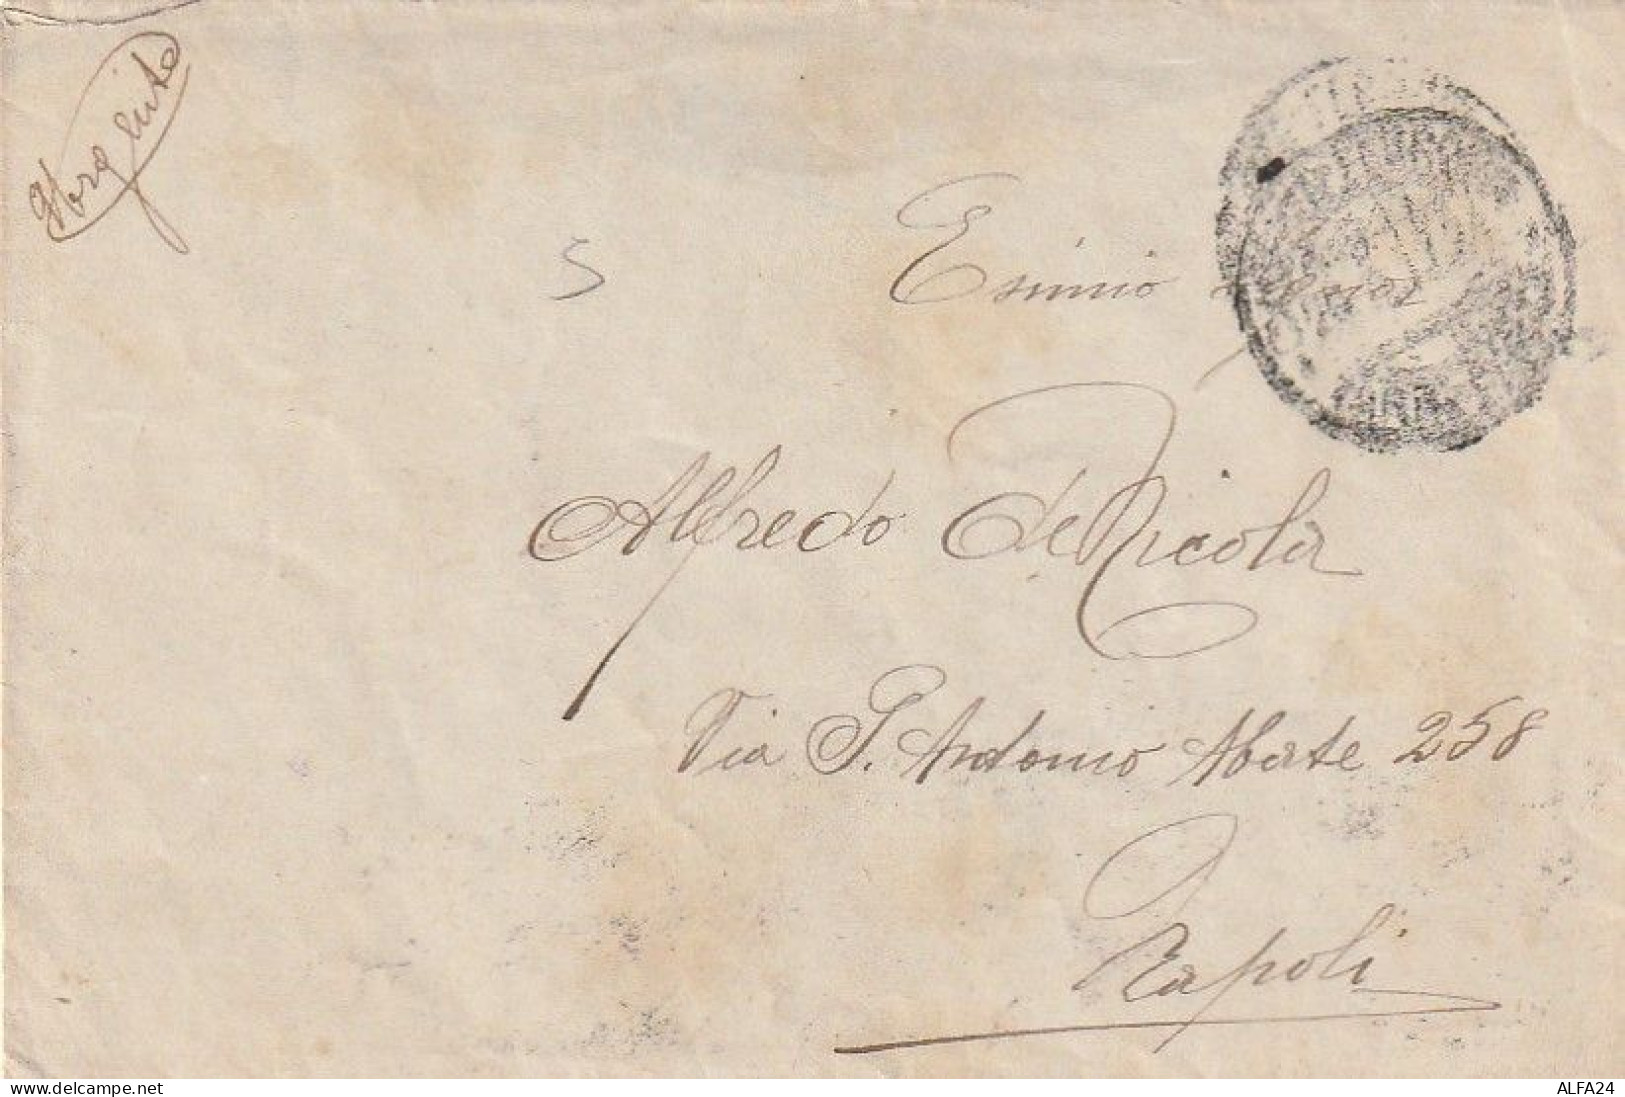 S
Esimio
Alfredo de Nicola
Via S. Antonio Abate 258
Napoli
www.delcampe.net
ALFA24